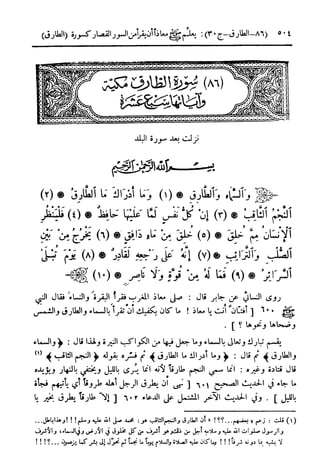 ٥٠٤ (٨٦ – الطارق – ج ٣٠) : يعلم ﷺ معاذاً أن يقرأ من السور القصار كسورة (الطارق)
(٨٦) سُورَة الطَّارق مَكِيّة
وَآيَاتُهَا سَبْع عَشرَة
نزلت بعد سورة البلد
بِسْمِ اللهِ الرَّحْمٰنِ الرَّحِيمِ
وَالسَّمَاءِ وَالطَّارِقِ * (١) وَمَا أَدْرَاكَ مَا الطَّارِقُ * (٢)
النَّجْمُ الثَّاقِبُ * (٣) إِن كُلُّ نَفْسٍ لَمَّا عَلَيْهَا حَافِظٌ * (٤) فَلْيَنْظُرِ
الْإِنْسَانُ مِمَّ خُلِقَ * (٥) خُلِقَ مِنْ مَاءٍ دَافِقٍ * (٦) يَخْرُجُ مِنْ بَيْنِ
الصُّلْبِ وَالتَّرَائِبِ * (٧) إِنَّهُ عَلَىٰ رَجْعِهِ لَقَادِرٌ * (٨) يَوْمَ تُبْلَى
السَّرَائِرُ * (٩) فَمَا لَهُ مِنْ قُوَّةٍ وَلَا نَاصِرٍ * (١٠)
روى النسائي عن جابر قال : صلى معاذ المغرب فقرأ البقرة والنساء فقال النبي
٦٠٠ [ أفتان أنت يا معاذ ! ما كان يكفيك أن تقرأ بالسماء والطارق والشمس
وضحاها ونحوها ؟ ] .
يقسم تبارك وتعالى بالسماء وما جعل فيها من الكواكب النيرة ولهذا قال : ﴿ والسماء
والطارق ﴾ ثم قال : ﴿ وما أدراك ما الطارق ﴾ ثم فسّره بقوله ﴿ النجم الثاقب ﴾ (١)
قال قتادة وغيره : إنما سمي النجم طارقاً لأنه إنما يُرى بالليل ويختفي بالنهار ويؤيده
ما جاء في الحديث الصحيح ٦٠١ [ نهى أن يطرق الرجل أهله طروقاً أي يأتيهم فجأة
بالليل ] . وفي الحديث الآخر المشتمل على الدعاء ٦٠٢ [ إلا طارقاً يطرق بخير يا
(١) قلت : زعم بعضهم...؟! أن الطارق والنجم الثاقب هو : محمد صلى الله عليه وسلم !!! وهذا باطل...